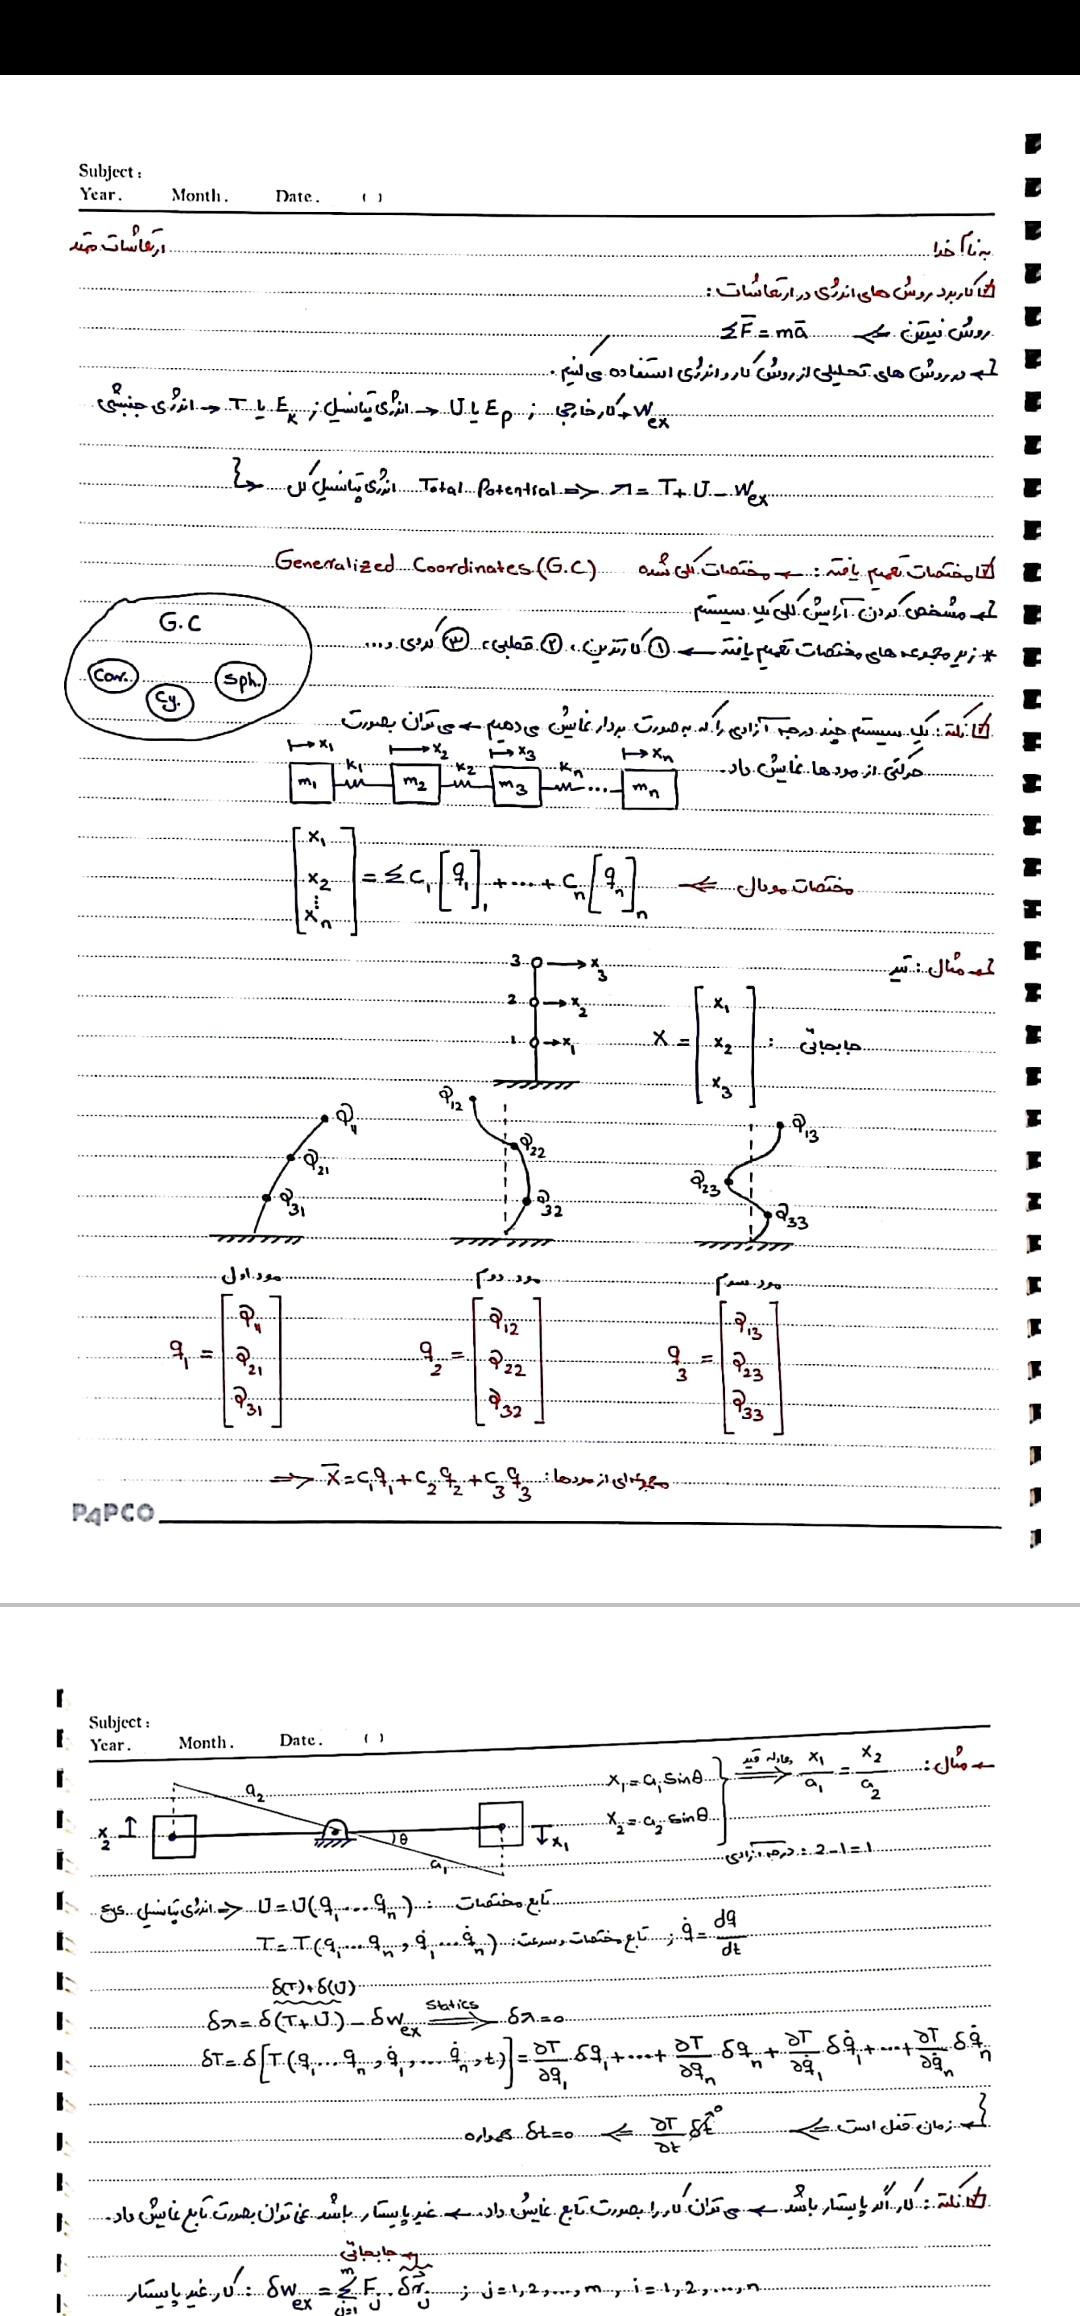 Subject :
Year. Month. Date. ( )
به نام خدا ارتعاشات ممتد
کاربرد روش های انرژی در ارتعاشات :
روش نیوتن ⇐ ΣF̄ = mā
در روش های تحلیلی از روش کار و انرژی استفاده می کنیم.
W_ex → کار خارجی ; E_p یا U → انرژی پتانسیل ; E_k یا T → انرژی جنبشی
انرژی پتانسیل کل Total Potential => π = T + U - W_ex
مختصات تعمیم یافته : → مختصات کلی شده Generalized Coordinates (G.C)
مشخص کردن آرایش کلی یک سیستم
G.C
* زیر مجموعه های مختصات تعمیم یافته ← ① کارتزین ، ② قطبی ، ③ کروی و...
Car. Cy. Sph.
نکته : یک سیستم چند درجه آزادی را که به صورت بردار نمایش می دهیم ← می توان بصورت
حرکتی از مودها نمایش داد.
x₁ x₂ x₃ xₙ
m₁ k₁ m₂ k₂ m₃ kₙ ... mₙ
[x₁ x₂ ⋮ xₙ] = Σ c₁ [q₁]₁ + .... + cₙ [qₙ]ₙ ⇐ مختصات مودال
مثال : تیر
3 → x₃
2 → x₂
1 → x₁
جابجائی : X = [x₁ x₂ x₃]
φ₁₁ φ₂₁ φ₃₁
φ₁₂ φ₂₂ φ₃₂
φ₁₃ φ₂₃ φ₃₃
مود اول مود دوم مود سوم
q₁ = [φ₁₁ φ₂₁ φ₃₁] q₂ = [φ₁₂ φ₂₂ φ₃₂] q₃ = [φ₁₃ φ₂₃ φ₃₃]
مجموعه ای از مودها : => X̄ = c₁q₁ + c₂q₂ + c₃q₃
PAPCO
Subject :
Year. Month. Date. ( )
مثال :
x₁ = a₁ Sinθ
x₂ = a₂ sinθ
معادله قید => x₁/a₁ = x₂/a₂
درجه آزادی : 2-1=1
x₂ a₂ θ a₁ x₁
تابع مختصات : U = U(q₁ .... qₙ) <= انرژی پتانسیل sys.
T = T(q₁ .... qₙ , q̇₁ .... q̇ₙ) : تابع مختصات و سرعت ; q̇ = dq/dt
δ(T) + δ(U)
δπ = δ(T+U) - δW_ex =Statics=> δπ = 0
δT = δ[T(q₁ ... qₙ , q̇₁ .... q̇ₙ , t)] = ∂T/∂q₁ δq₁ + .... + ∂T/∂qₙ δqₙ + ∂T/∂q̇₁ δq̇₁ + .... + ∂T/∂q̇ₙ δq̇ₙ
زمان قفل است ⇐ ∂T/∂t δt⁰ ⇐ δt=0 همواره
نکته : کار اگر پایستار باشد ← می توان کار را بصورت تابع نمایش داد. ← غیر پایستار باشد نمی توان بصورت تابع نمایش داد.
جابجائی
کار غیر پایستار : δW_ex = Σ_{j=1}^{m} F_j . δr̄_j ; j = 1, 2, ..., m , i = 1, 2, ..., n